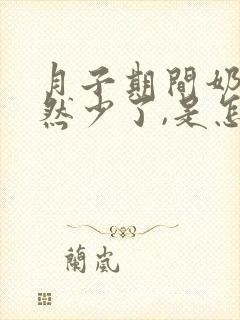 月子期間奶
然少了,是怎
蘭嵐